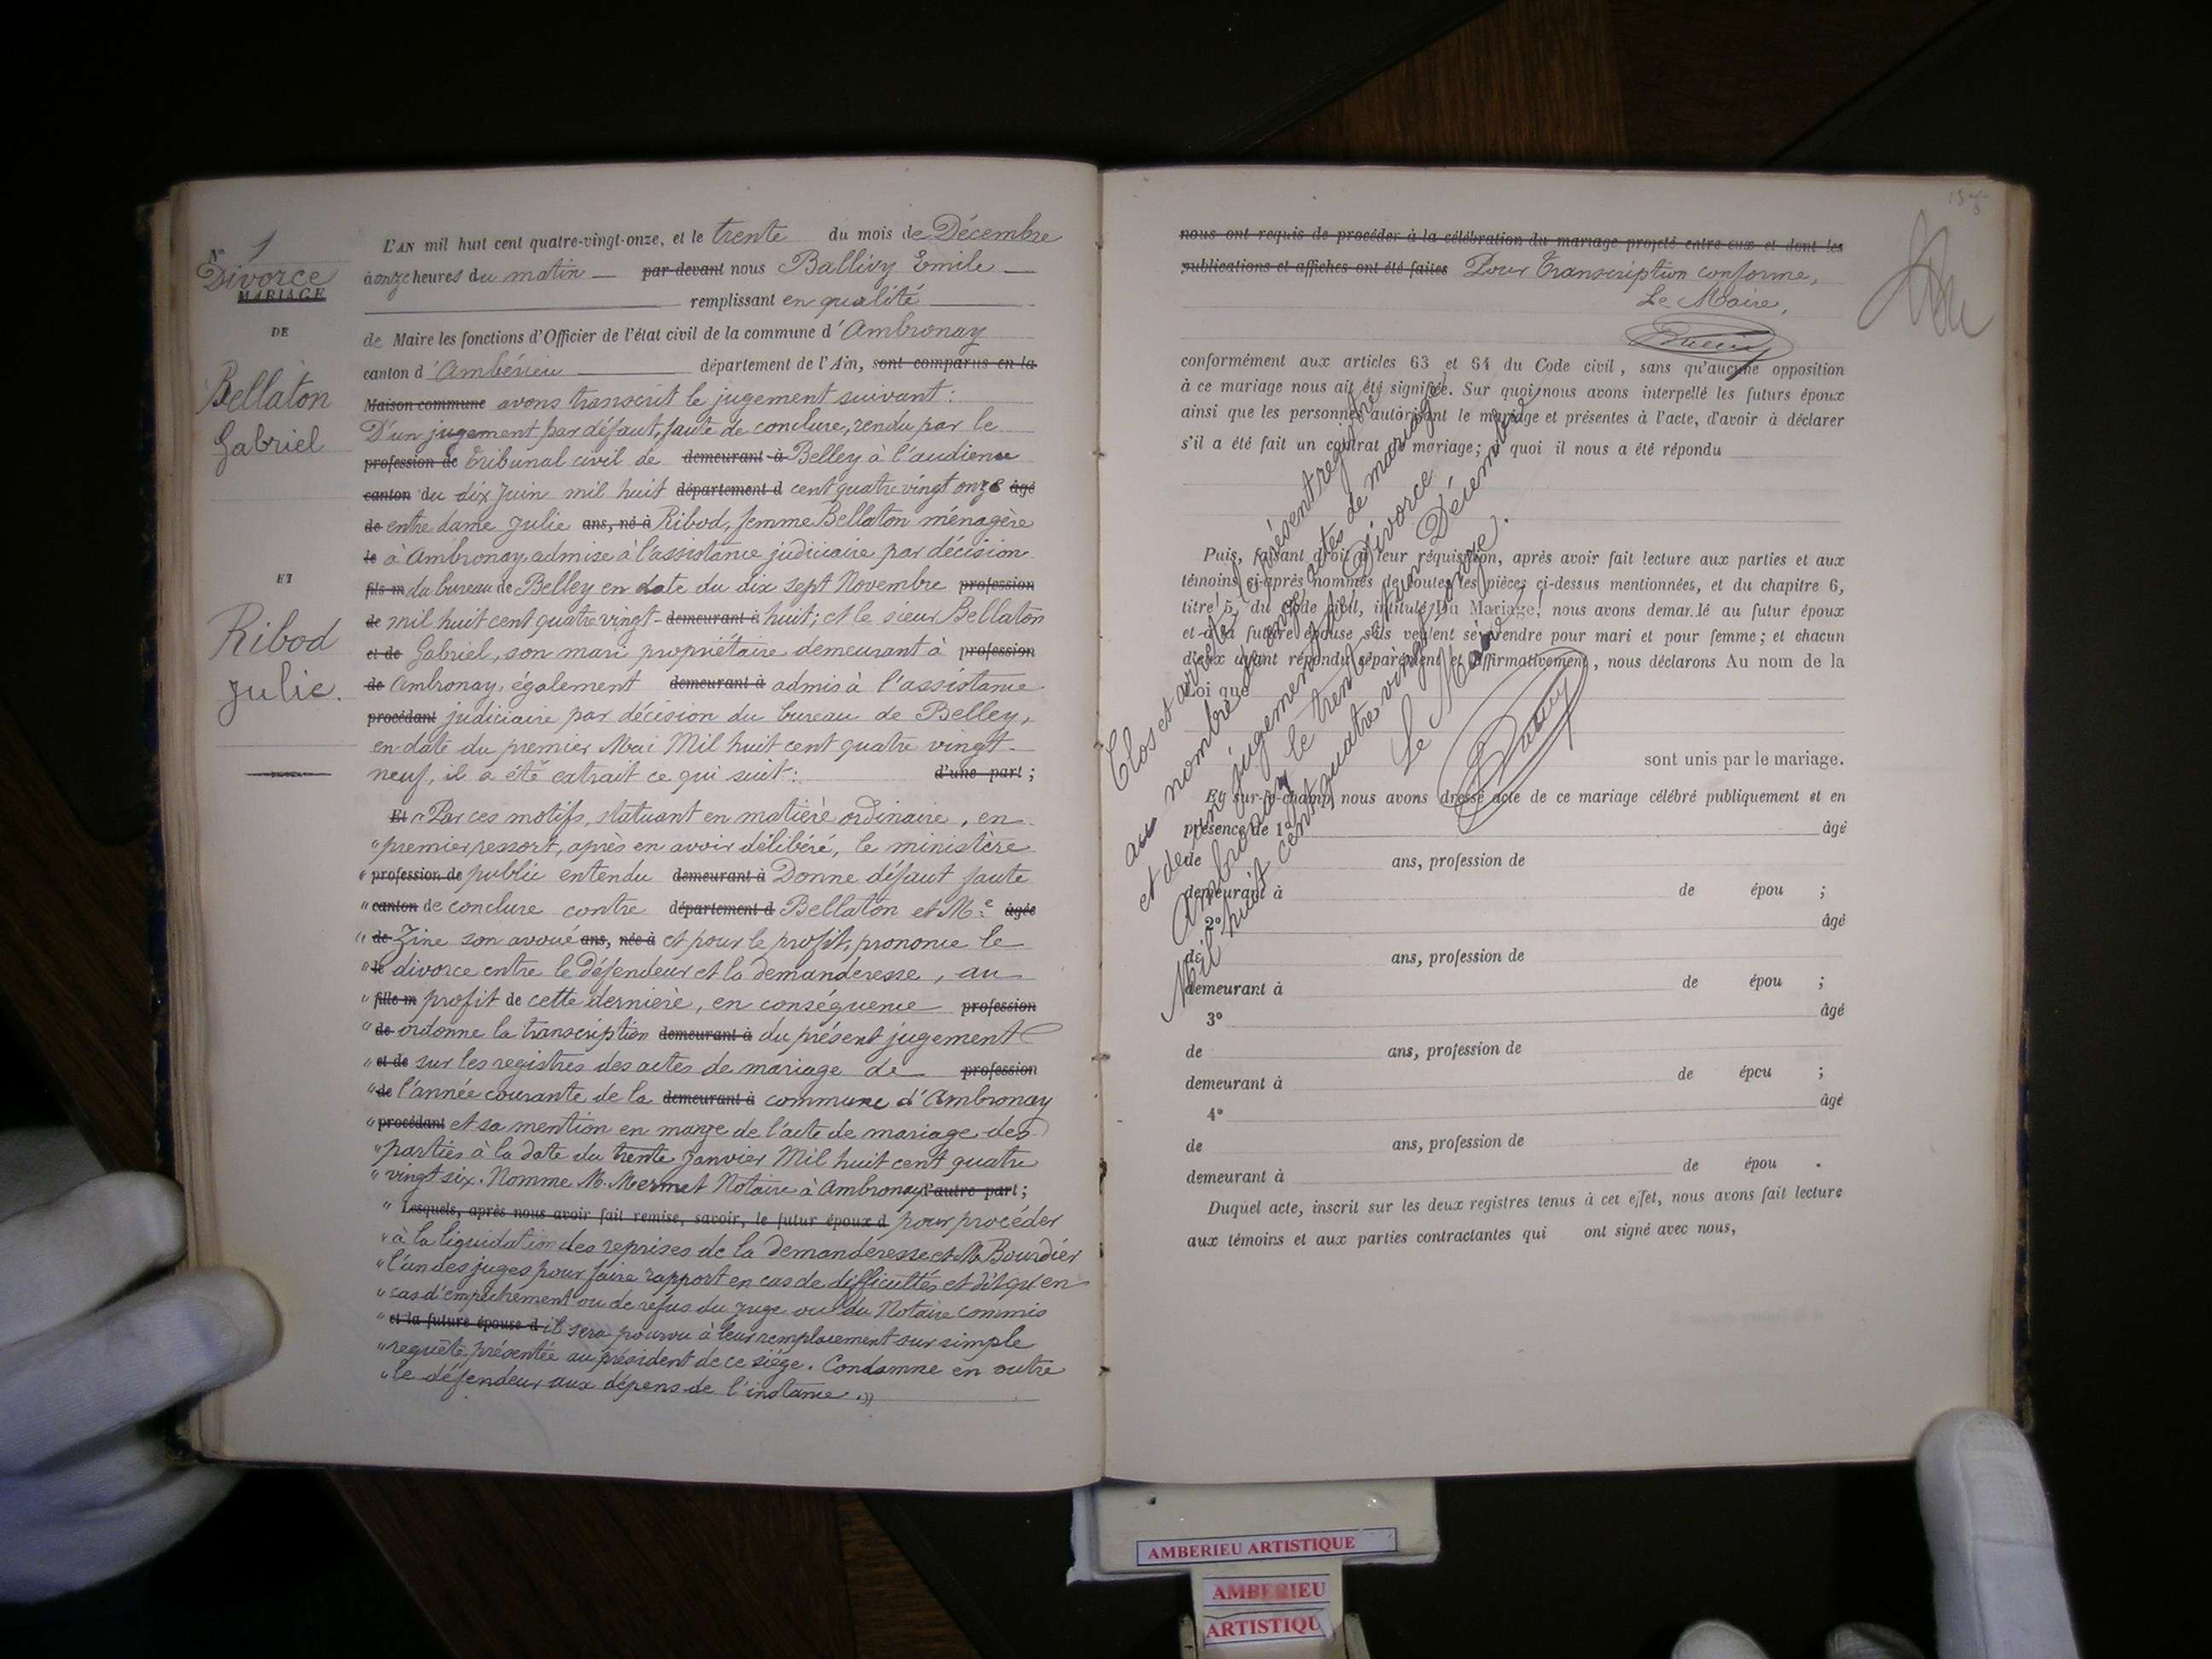 N° 1
Divorce
MARIAGE
DE
Bellaton
Gabriel
ET
Ribod
Julie.
L'AN mil huit cent quatre-vingt-onze, et le trente du mois de Décembre
à onze heures du matin — par devant nous Ballivy Emile —
remplissant en qualité
de Maire les fonctions d'Officier de l'état civil de la commune d'Ambronay
canton d'Ambérieu département de l'Ain, sont comparus en la
Maison commune avons transcrit le jugement suivant :
D'un jugement par défaut, faute de conclure, rendu par le
profession de Tribunal civil de demeurant à Belley à l'audience
canton du dix Juin mil huit département d cent quatre vingt onze âgé
de entre dame Julie ans, né à Ribod, femme Bellaton ménagère
le à Ambronay, admise à l'assistance judiciaire par décision
fils m du bureau de Belley en date du dix sept Novembre profession
de mil huit cent quatre vingt- demeurant à huit; et le sieur Bellaton
et de Gabriel, son mari propriétaire demeurant à profession
de Ambronay, également demeurant à admis à l'assistance
procédant judiciaire par décision du bureau de Belley,
en date du premier Mai Mil huit cent quatre vingt-
neuf, il a été extrait ce qui suit: d'une part ;
Et « Par ces motifs, statuant en matière ordinaire, en
" premier ressort, après en avoir délibéré, le ministère
" profession de public entendu demeurant à Donne défaut faute
" canton de conclure contre département d Bellaton et Me âgée
" de Zine son avoué ans, née à et pour le profit, prononce le
" le divorce entre le défendeur et la demanderesse, au
" fille m profit de cette dernière, en conséquence profession
" de ordonne la transcription demeurant à du présent jugement
" et de sur les registres des actes de mariage de profession
" de l'année courante de la demeurant à commune d'Ambronay
" procédant et sa mention en marge de l'acte de mariage des
" parties à la date du trente Janvier Mil huit cent quatre
" vingt six. Nomme M. Mermet Notaire à Ambronay d'autre part ;
" Lesquels, après nous avoir fait remise, savoir, le futur époux d pour procéder
" à la liquidation des reprises de la demanderesse et M. Bourdier
" l'un des juges pour faire rapport en cas de difficultés et dit qu'en
" cas d'empêchement ou de refus du Juge ou du Notaire commis
" et la future épouse d il sera pourvu à leur remplacement sur simple
" requête présentée au président de ce siège. Condamne en outre
" le défendeur aux dépens de l'instance. »
nous ont requis de procéder à la célébration du mariage projeté entre eux et dont les
publications et affiches ont été faites Pour Transcription conforme,
Le Maire,
conformément aux articles 63 et 64 du Code civil, sans qu'aucune opposition
à ce mariage nous ait été signifiée. Sur quoi nous avons interpellé les futurs époux
ainsi que les personnes autorisant le mariage et présentes à l'acte, d'avoir à déclarer
s'il a été fait un contrat de mariage; à quoi il nous a été répondu
Puis, faisant droit à leur réquisition, après avoir fait lecture aux parties et aux
témoins ci-après nommés de toutes les pièces ci-dessus mentionnées, et du chapitre 6,
titre 5, du Code civil, intitulé Du Mariage, nous avons demandé au futur époux
et à la future épouse s'ils veulent se prendre pour mari et pour femme ; et chacun
d'eux ayant répondu séparément et affirmativement, nous déclarons Au nom de la
Loi que
sont unis par le mariage.
Et sur-le-champ, nous avons dressé acte de ce mariage célébré publiquement et en
présence de 1° âgé
de ans, profession de
demeurant à de épou ;
2° âgé
de ans, profession de
demeurant à de épou ;
3° âgé
de ans, profession de
demeurant à de épou ;
4° âgé
de ans, profession de
demeurant à de épou .
Duquel acte, inscrit sur les deux registres tenus à cet effet, nous avons fait lecture
aux témoins et aux parties contractantes qui ont signé avec nous,
Clos et arrêté le présent registre
au nombre de onze actes de mariage
et de un jugement de Divorce
Ambronay le trente et un Décembre
Mil huit cent quatre vingt onze.
Le Maire
AMBERIEU ARTISTIQUE
AMBERIEU
ARTISTIQU